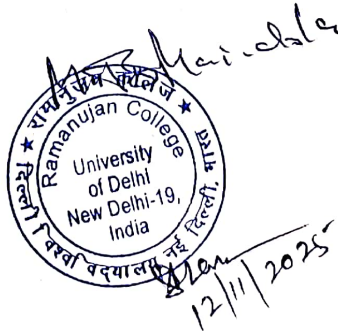 ★ रामानुजन कॉलेज ★
Ramanujan College
University
of Delhi
New Delhi-19,
India
दिल्ली विश्वविद्यालय नई दिल्ली, भारत
12/11/2025